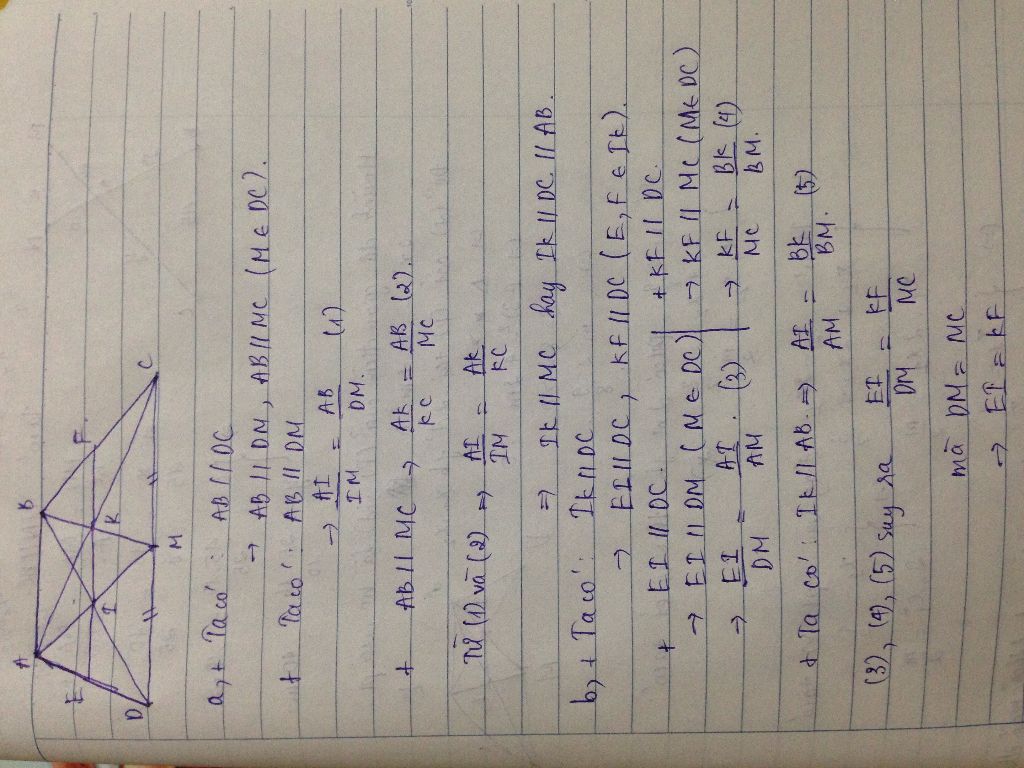 A B
E F
I K
D M C
a, + Ta có: AB // DC
→ AB // DM, AB // MC (M ∈ DC).
+ Ta có: AB // DM
→ AI/IM = AB/DM. (1)
+ AB // MC → AK/KC = AB/MC (2).
Từ (1) và (2) ⇒ AI/IM = AK/KC
⇒ IK // MC hay IK // DC // AB.
b, + Ta có: IK // DC
→ EI // DC, KF // DC (E, F ∈ IK).
+ EI // DC. | + KF // DC.
→ EI // DM (M ∈ DC) | → KF // MC (M ∈ DC)
→ EI/DM = AI/AM. (3) | → KF/MC = BK/BM. (4)
+ Ta có: IK // AB. ⇒ AI/AM = BK/BM. (5)
(3), (4), (5) suy ra EI/DM = KF/MC
mà DM = MC
→ EI = KF